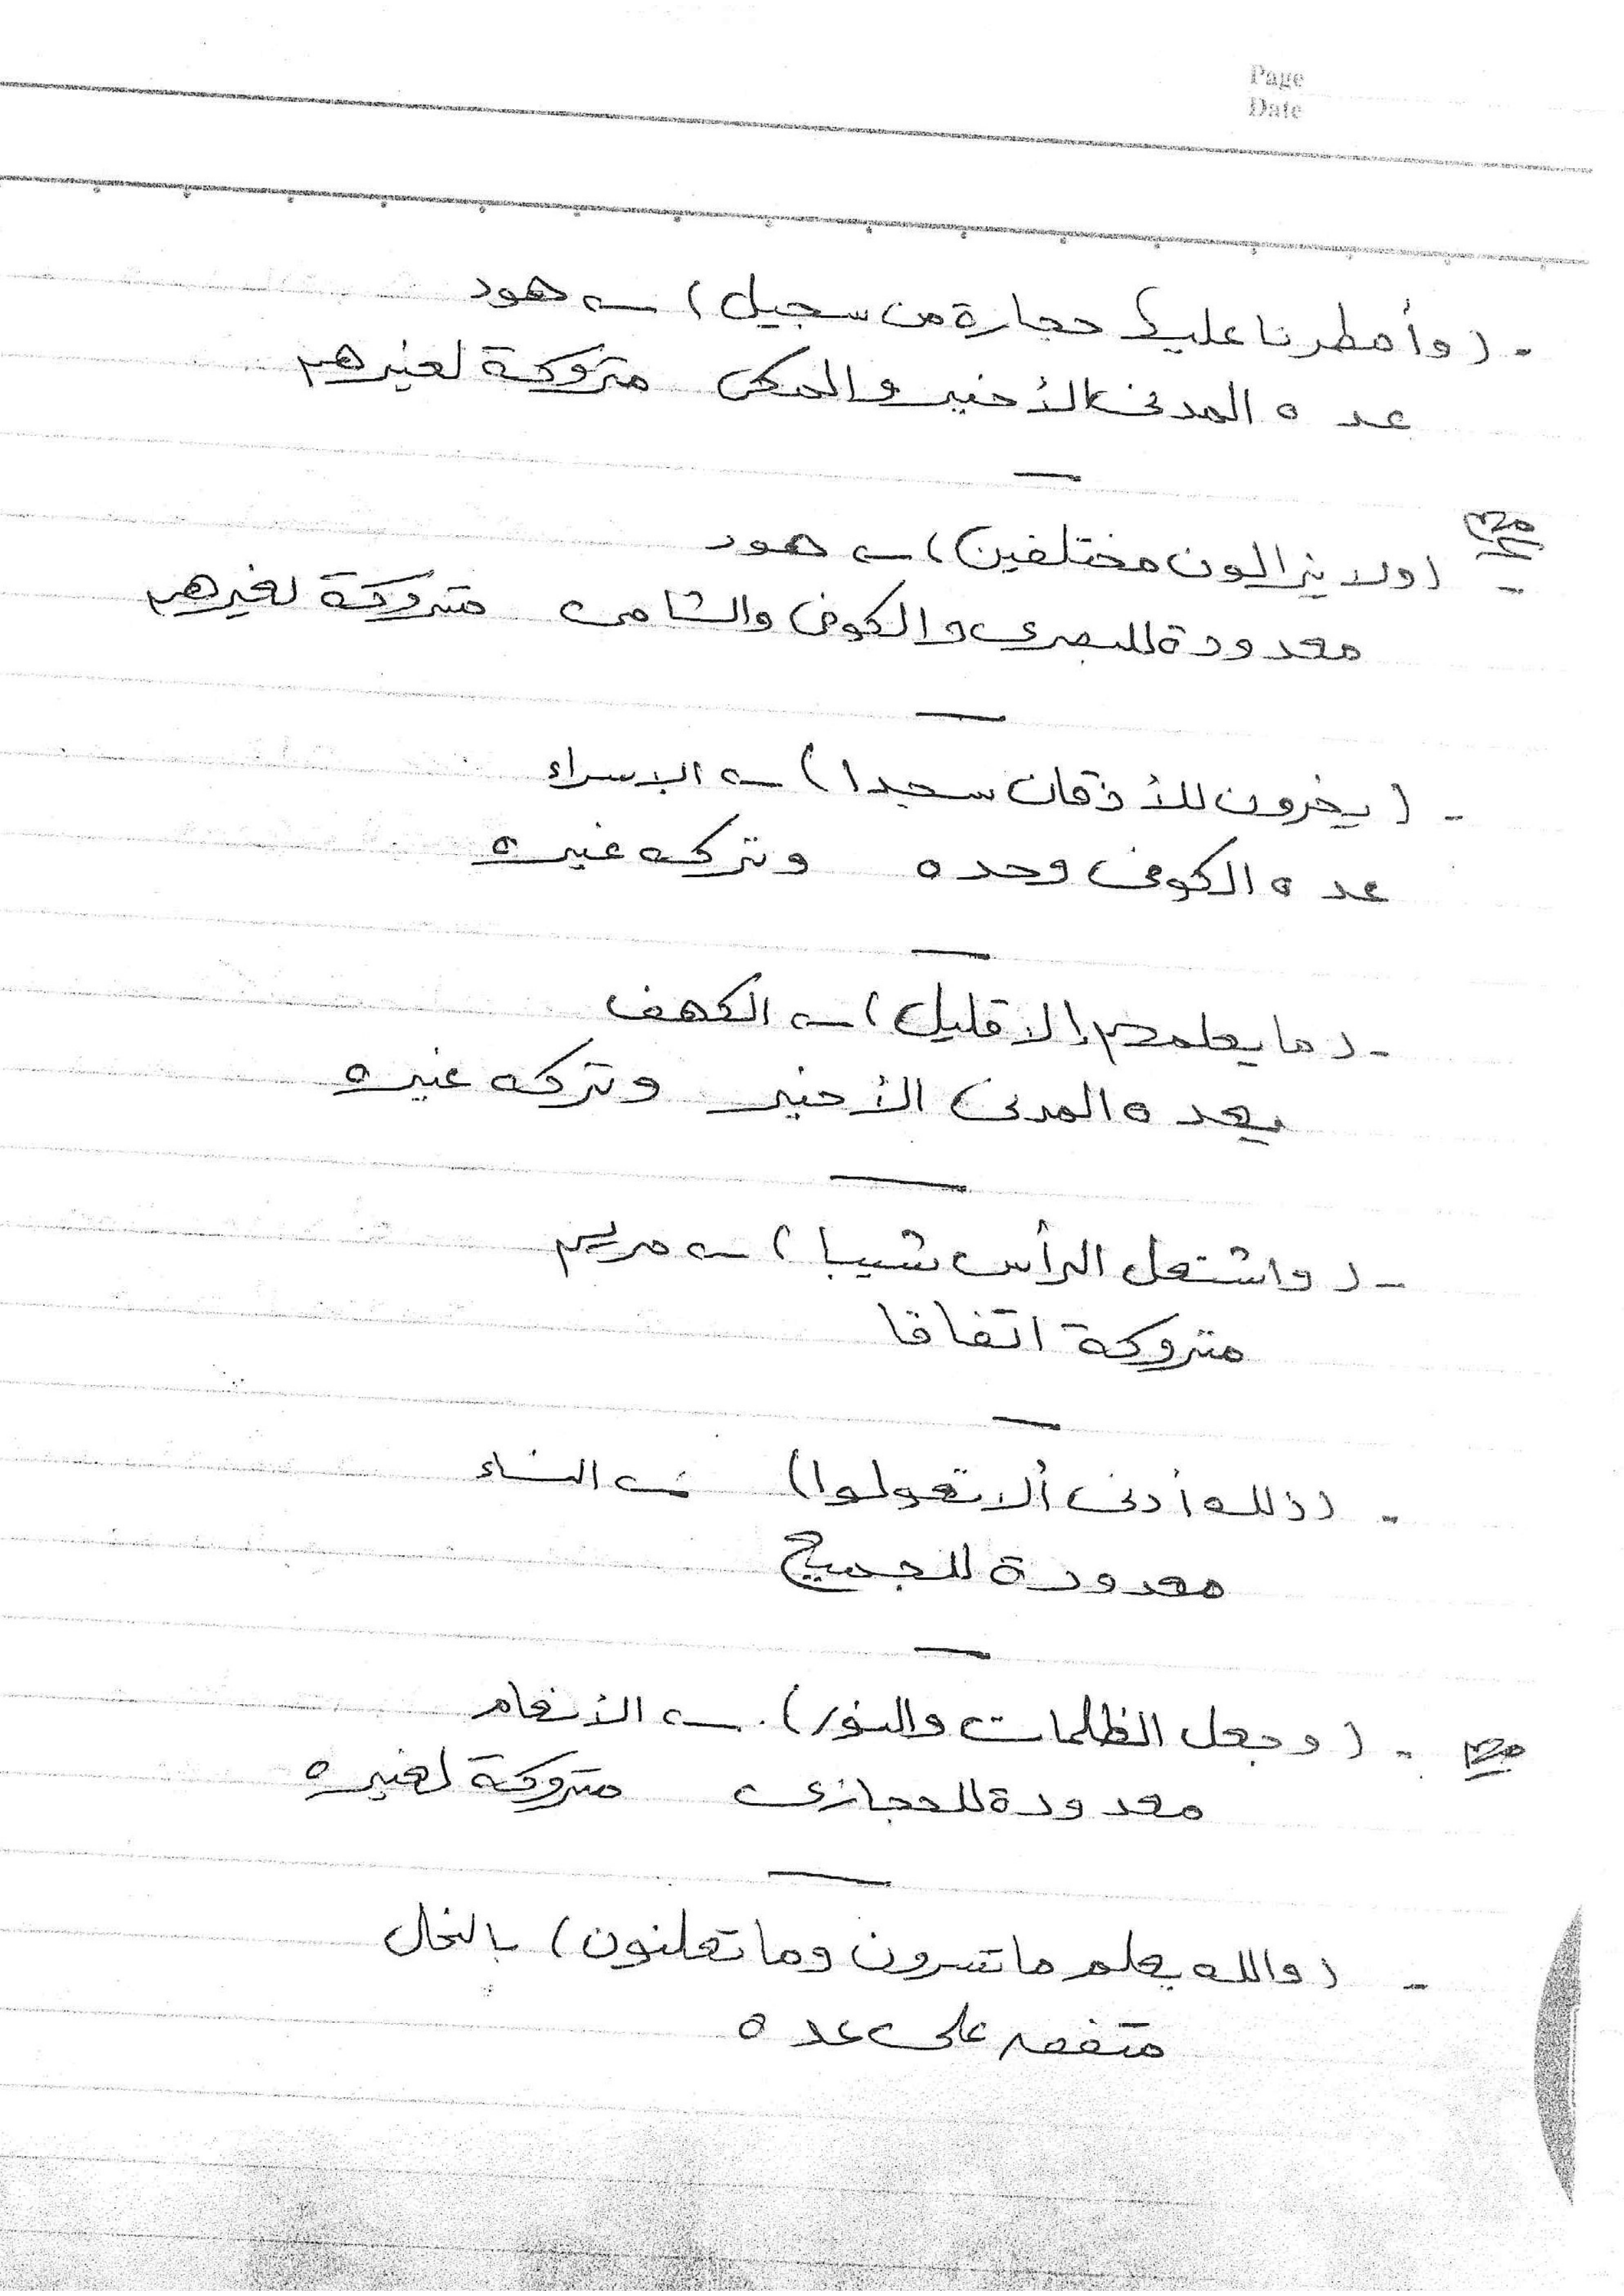 Page
Date
- (وأمطرنا عليها حجارة من سجيل) ← هود
عده المدني الأخير والمكي متروكة لغيرهم
- (ولا يزالون مختلفين) ← هود
معدودة للبصري والكوفي والشامي متروكة لغيرهم
- (يخرون للأذقان سجدا) ← الإسراء
عده الكوفي وحده وتركه غيره
- (ما يعلمهم إلا قليل) ← الكهف
يعده المدني الأخير وتركه غيره
- (واشتعل الرأس شيبا) ← مريم
متروكة اتفاقا
- (ذلك أدنى ألا تعولوا) ← النساء
معدودة للجميع
- (وجعل الظلمات والنور) ← الأنعام
معدودة للحجازي متروكة لغيره
- (والله يعلم ما تسرون وما تعلنون) بالنحل
متفق على عده